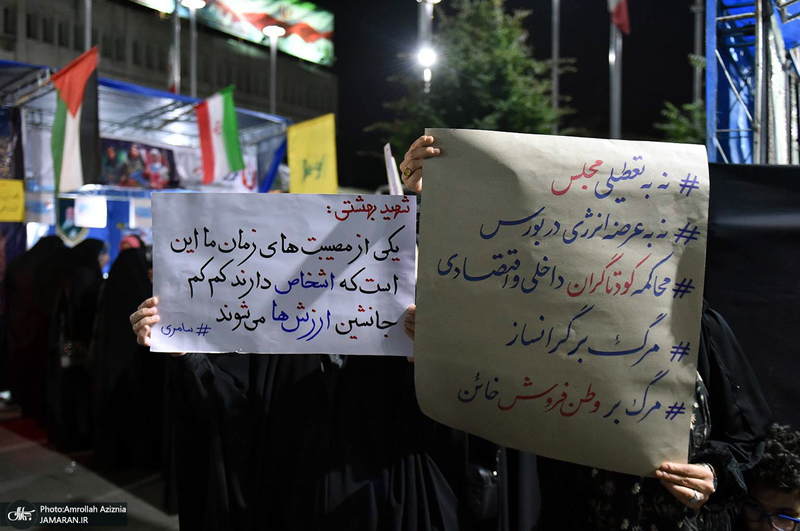 شهید بهشتی:
یکی از مصیبت های زمان ما این
است که اشخاص دارند کم کم
جانشین ارزش‌ها می‌شوند
#سامری
# نه به تعطیلی مجلس
# نه به عرضه انرژی در بورس
# محاکمه کودتاگران داخلی و اقتصادی
# مرگ بر گرانساز
# مرگ بر وطن فروش خائن
Photo:Amrollah Aziznia
JAMARAN.IR